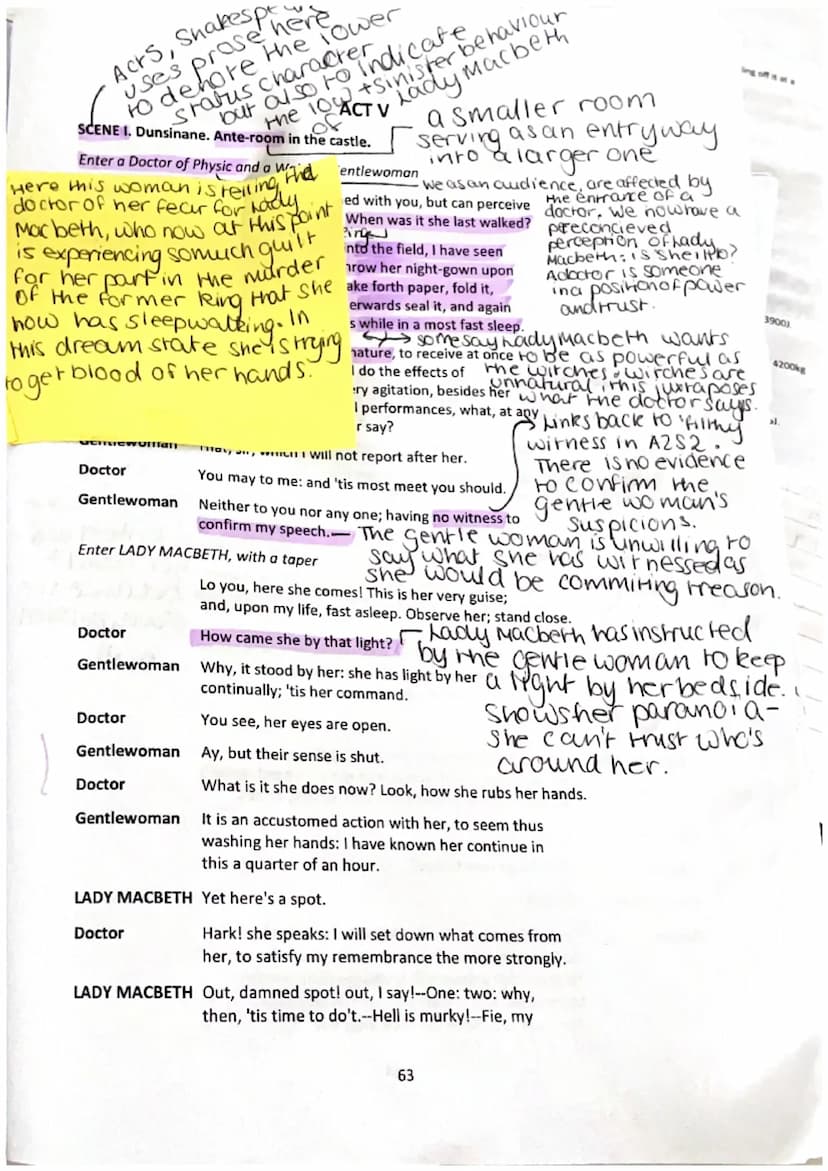 Act5, Shakespe
uses prose here
to denote the lower
status character
but also to indicate
the low + sinister behaviour
of Lady Macbeth
ACT V
SCENE I. Dunsinane. Ante-room in the castle.
a smaller room
serving as an entryway
into a larger one
Enter a Doctor of Physic and a Wai entlewoman
Here this woman is telling the
doctor of her fear for Lady
Macbeth, who now at this point
is experiencing so much guilt
for her part in the murder
of the former king that she
now has sleepwalking. In
this dream state she is trying
to get blood of her hands.
we as an audience, are affected by
the entrance of a
doctor. We now have a
preconcieved
perception of Lady
Macbeth: is she ill?
A doctor is someone
in a position of power
and trust.
ed with you, but can perceive
When was it she last walked?
into the field, I have seen
hrow her night-gown upon
ake forth paper, fold it,
erwards seal it, and again
s while in a most fast sleep.
some say Lady Macbeth wants
to be as powerful as
the witches. witches are
unnatural, this juxtaposes
what the doctor says.
nature, to receive at once
l do the effects of
ry agitation, besides her
l performances, what, at any
r say?
Links back to 'filthy
witness in A2S2.
There is no evidence
to confirm the
gentle woman's
suspicions.
Gentlewoman That, sir, which I will not report after her.
Doctor You may to me: and 'tis most meet you should.
Gentlewoman Neither to you nor any one; having no witness to
confirm my speech.
The gentle woman is unwilling to
say what she has witnessed as
she would be commiting treason.
Enter LADY MACBETH, with a taper
Lo you, here she comes! This is her very guise;
and, upon my life, fast asleep. Observe her; stand close.
Doctor How came she by that light?
Lady Macbeth has instructed
by the gentle woman to keep
a light by her bedside.
shows her paranoia-
she can't trust who's
around her.
Gentlewoman Why, it stood by her: she has light by her
continually; 'tis her command.
Doctor You see, her eyes are open.
Gentlewoman Ay, but their sense is shut.
Doctor What is it she does now? Look, how she rubs her hands.
Gentlewoman It is an accustomed action with her, to seem thus
washing her hands: I have known her continue in
this a quarter of an hour.
LADY MACBETH Yet here's a spot.
Doctor Hark! she speaks: I will set down what comes from
her, to satisfy my remembrance the more strongly.
LADY MACBETH Out, damned spot! out, I say!--One: two: why,
then, 'tis time to do't.--Hell is murky!--Fie, my
63
ing off it as a
3900J
4200kg